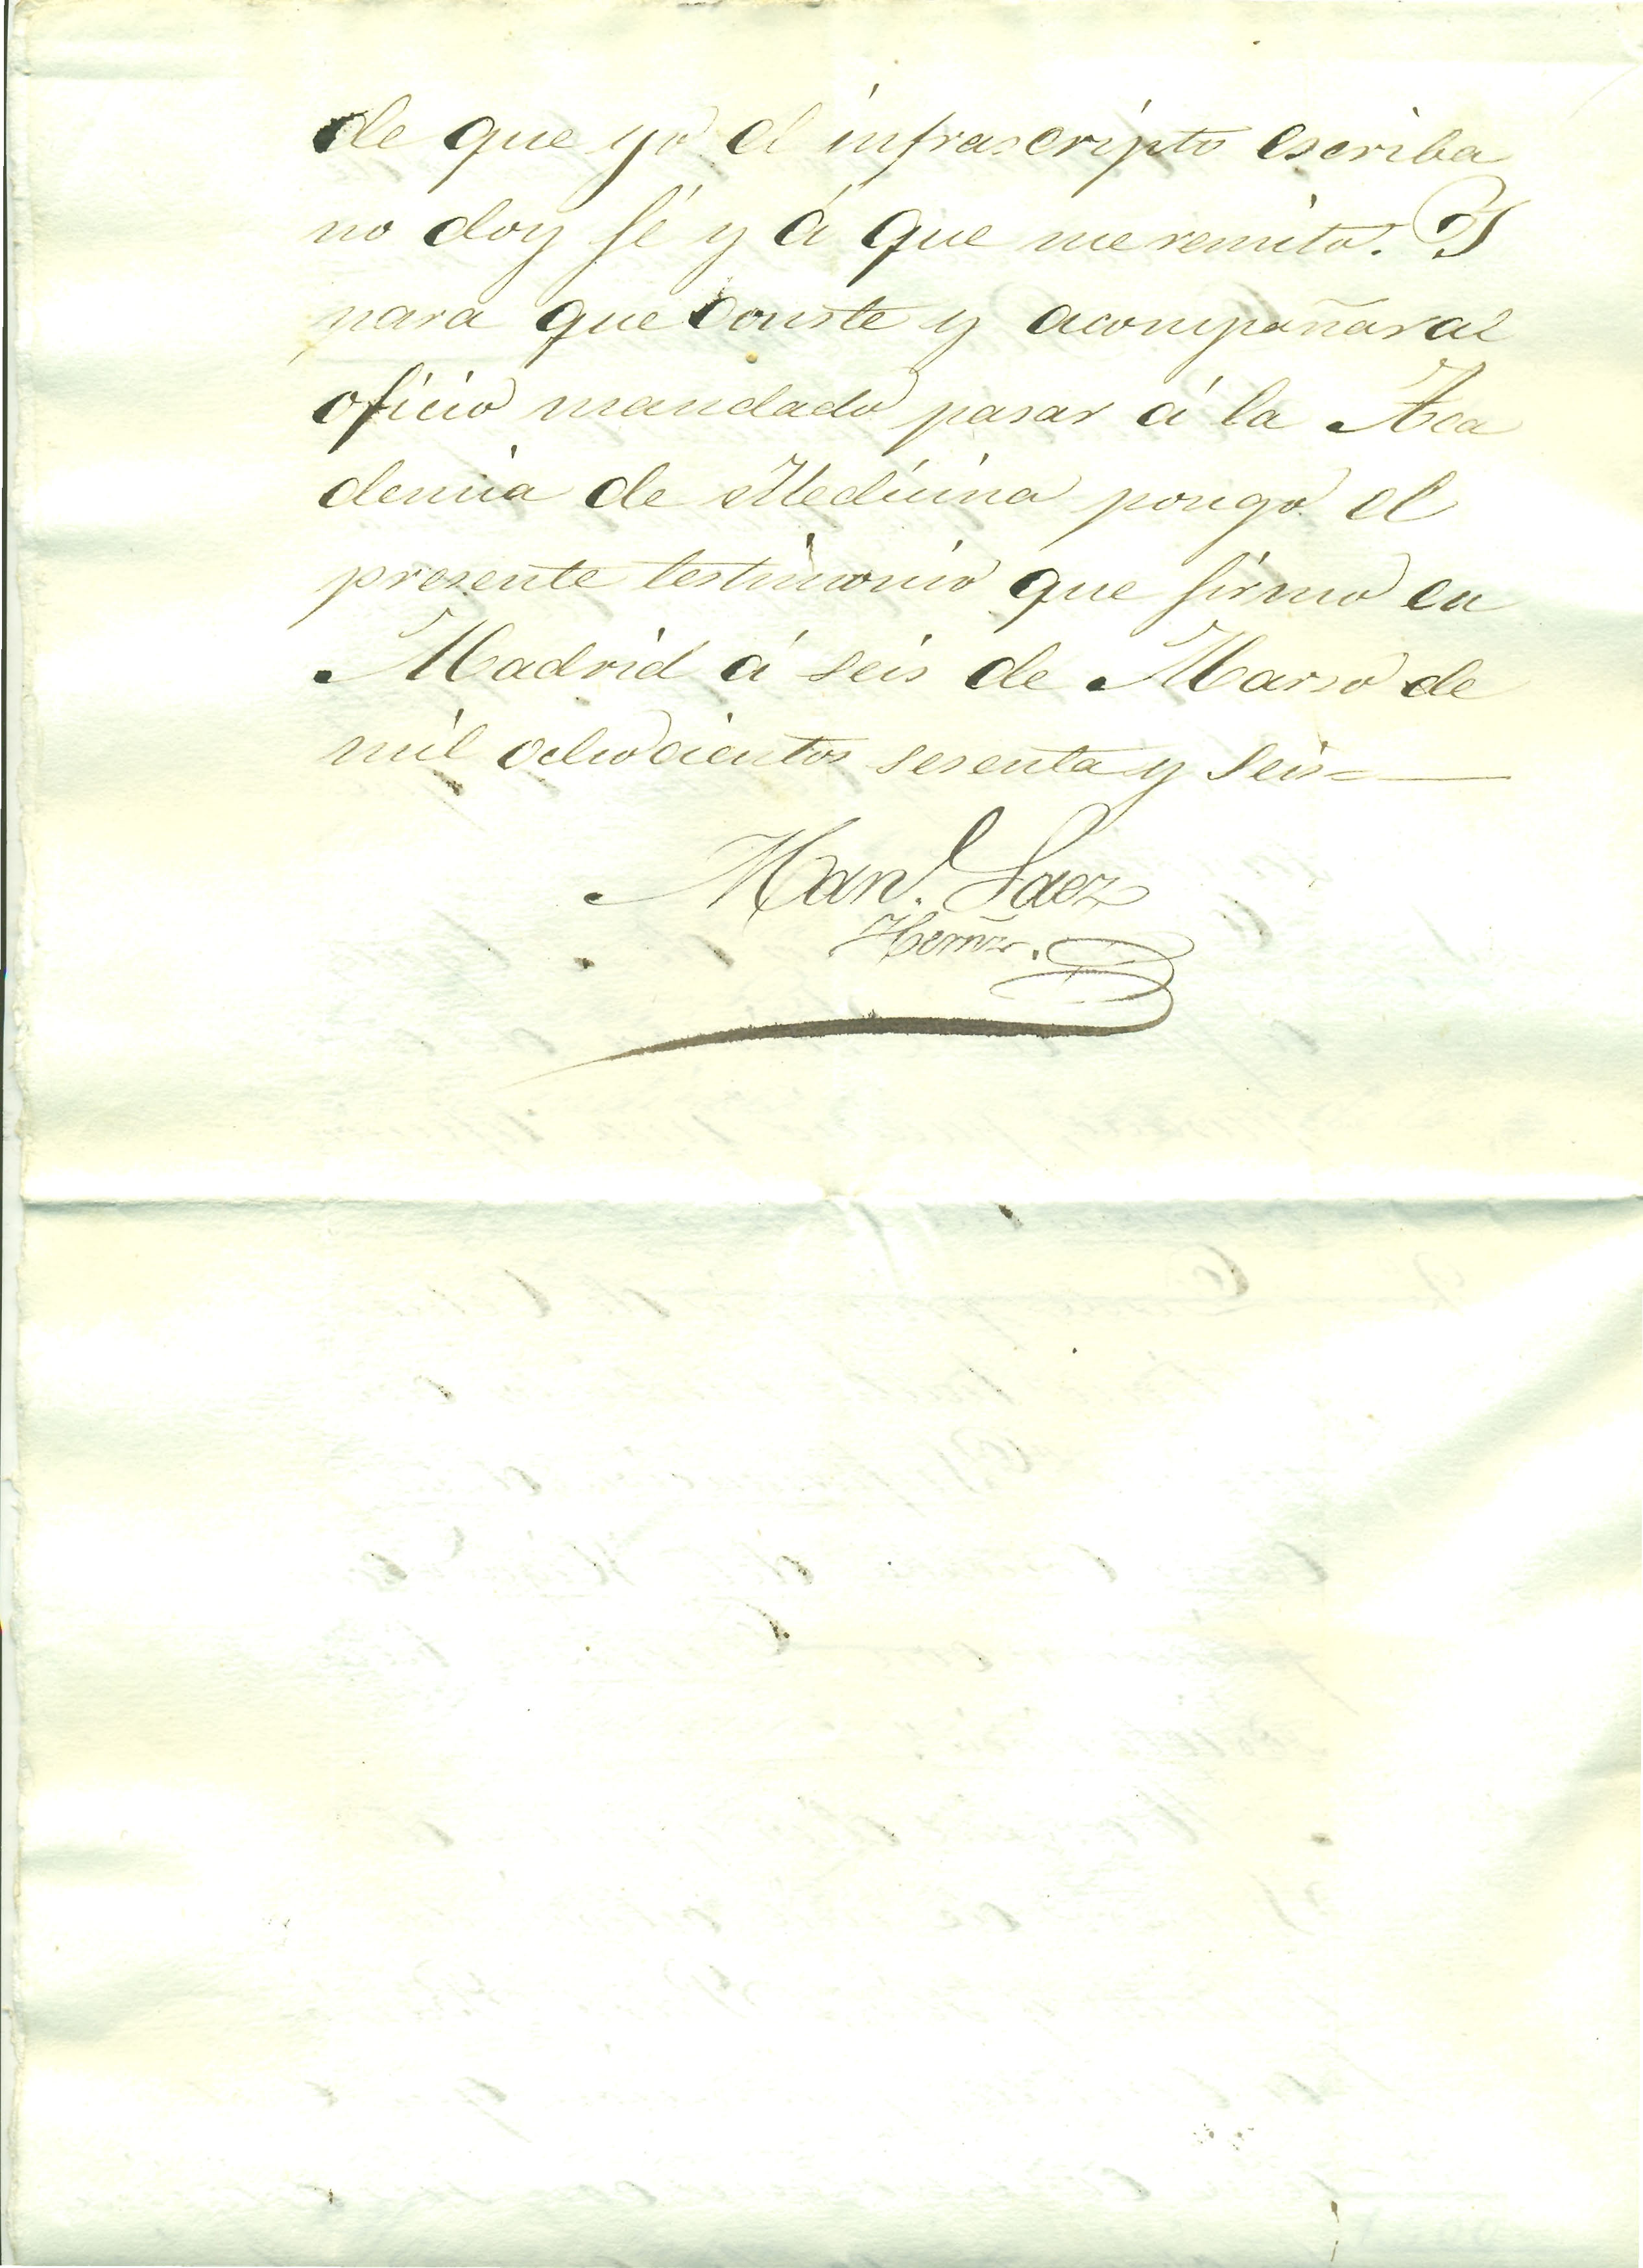 de que yo el infrascripto escriba
no doy fé y á que me remito. Y
para que conste y acompañar al
oficio mandado pasar á la Aca
demia de Medicina pongo el
presente testimonio que firmo en
Madrid á seis de Marzo de
mil ochocientos sesenta y seis=
Man.l Saez
Hernz.